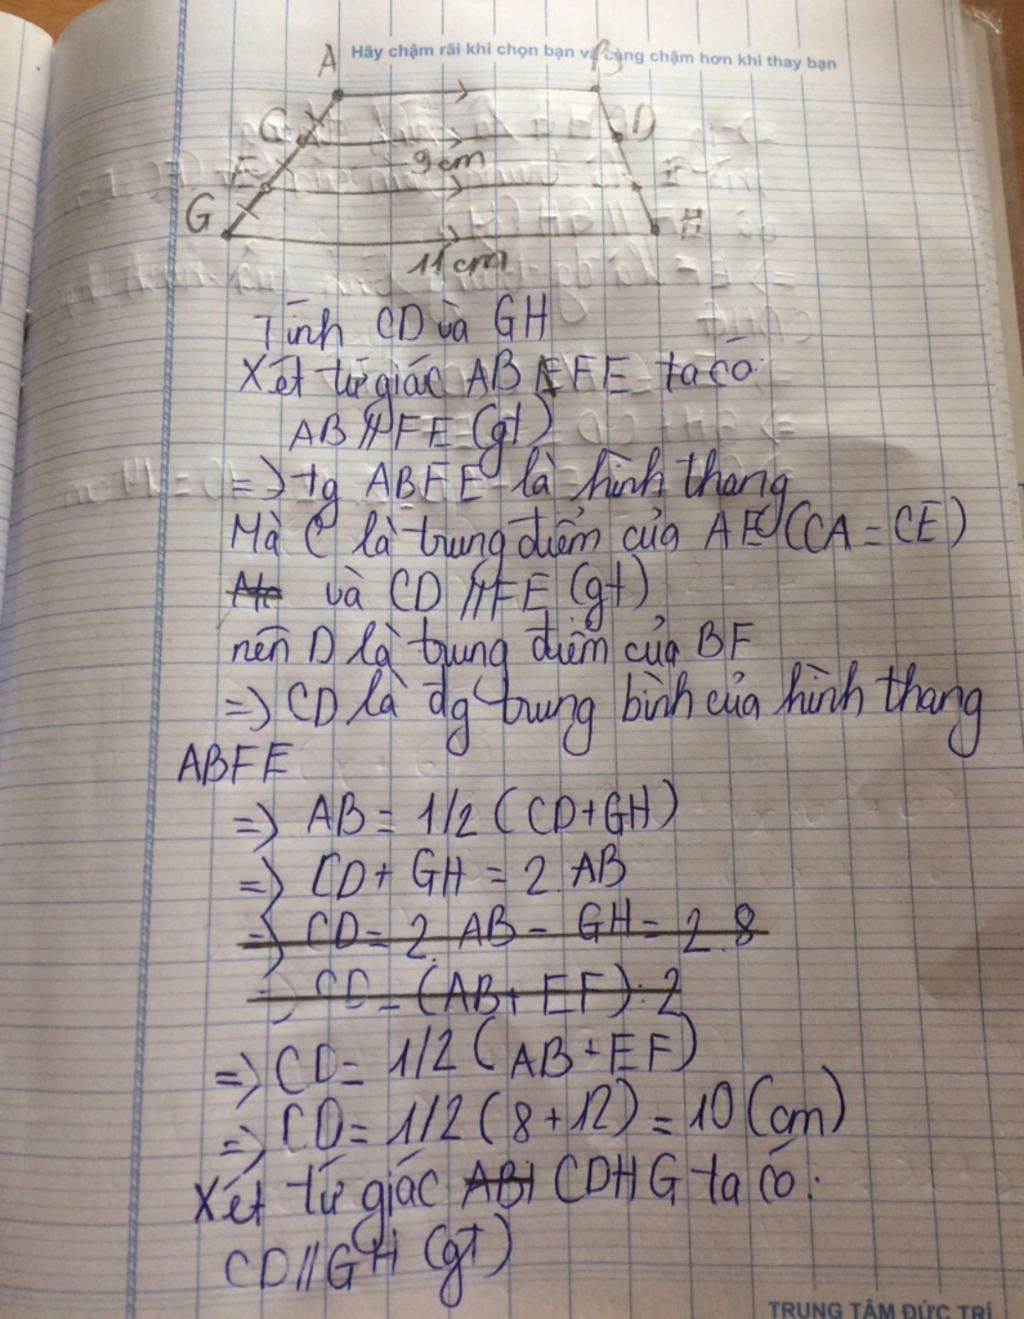 Hãy chậm rãi khi chọn bạn và càng chậm hơn khi thay bạn
A B
C D
9 cm
E F
G H
11 cm
Tính CD và GH
Xét tứ giác ABFE ta có:
AB // FE (gt)
=> tg ABFE là hình thang
Mà C là trung điểm của AE (CA = CE)
và CD // FE (gt)
nên D là trung điểm của BF
=> CD là đg trung bình của hình thang
ABFE
=> AB = 1/2 (CD + GH)
=> CD + GH = 2. AB
=> CD = 2. AB - GH = 2.8
=> CD = (AB + EF) : 2
=> CD = 1/2 (AB + EF)
=> CD = 1/2 (8 + 12) = 10 (cm)
Xét tứ giác ABH CDHG ta có:
CD // GH (gt)
TRUNG TÂM ĐỨC TRÍ